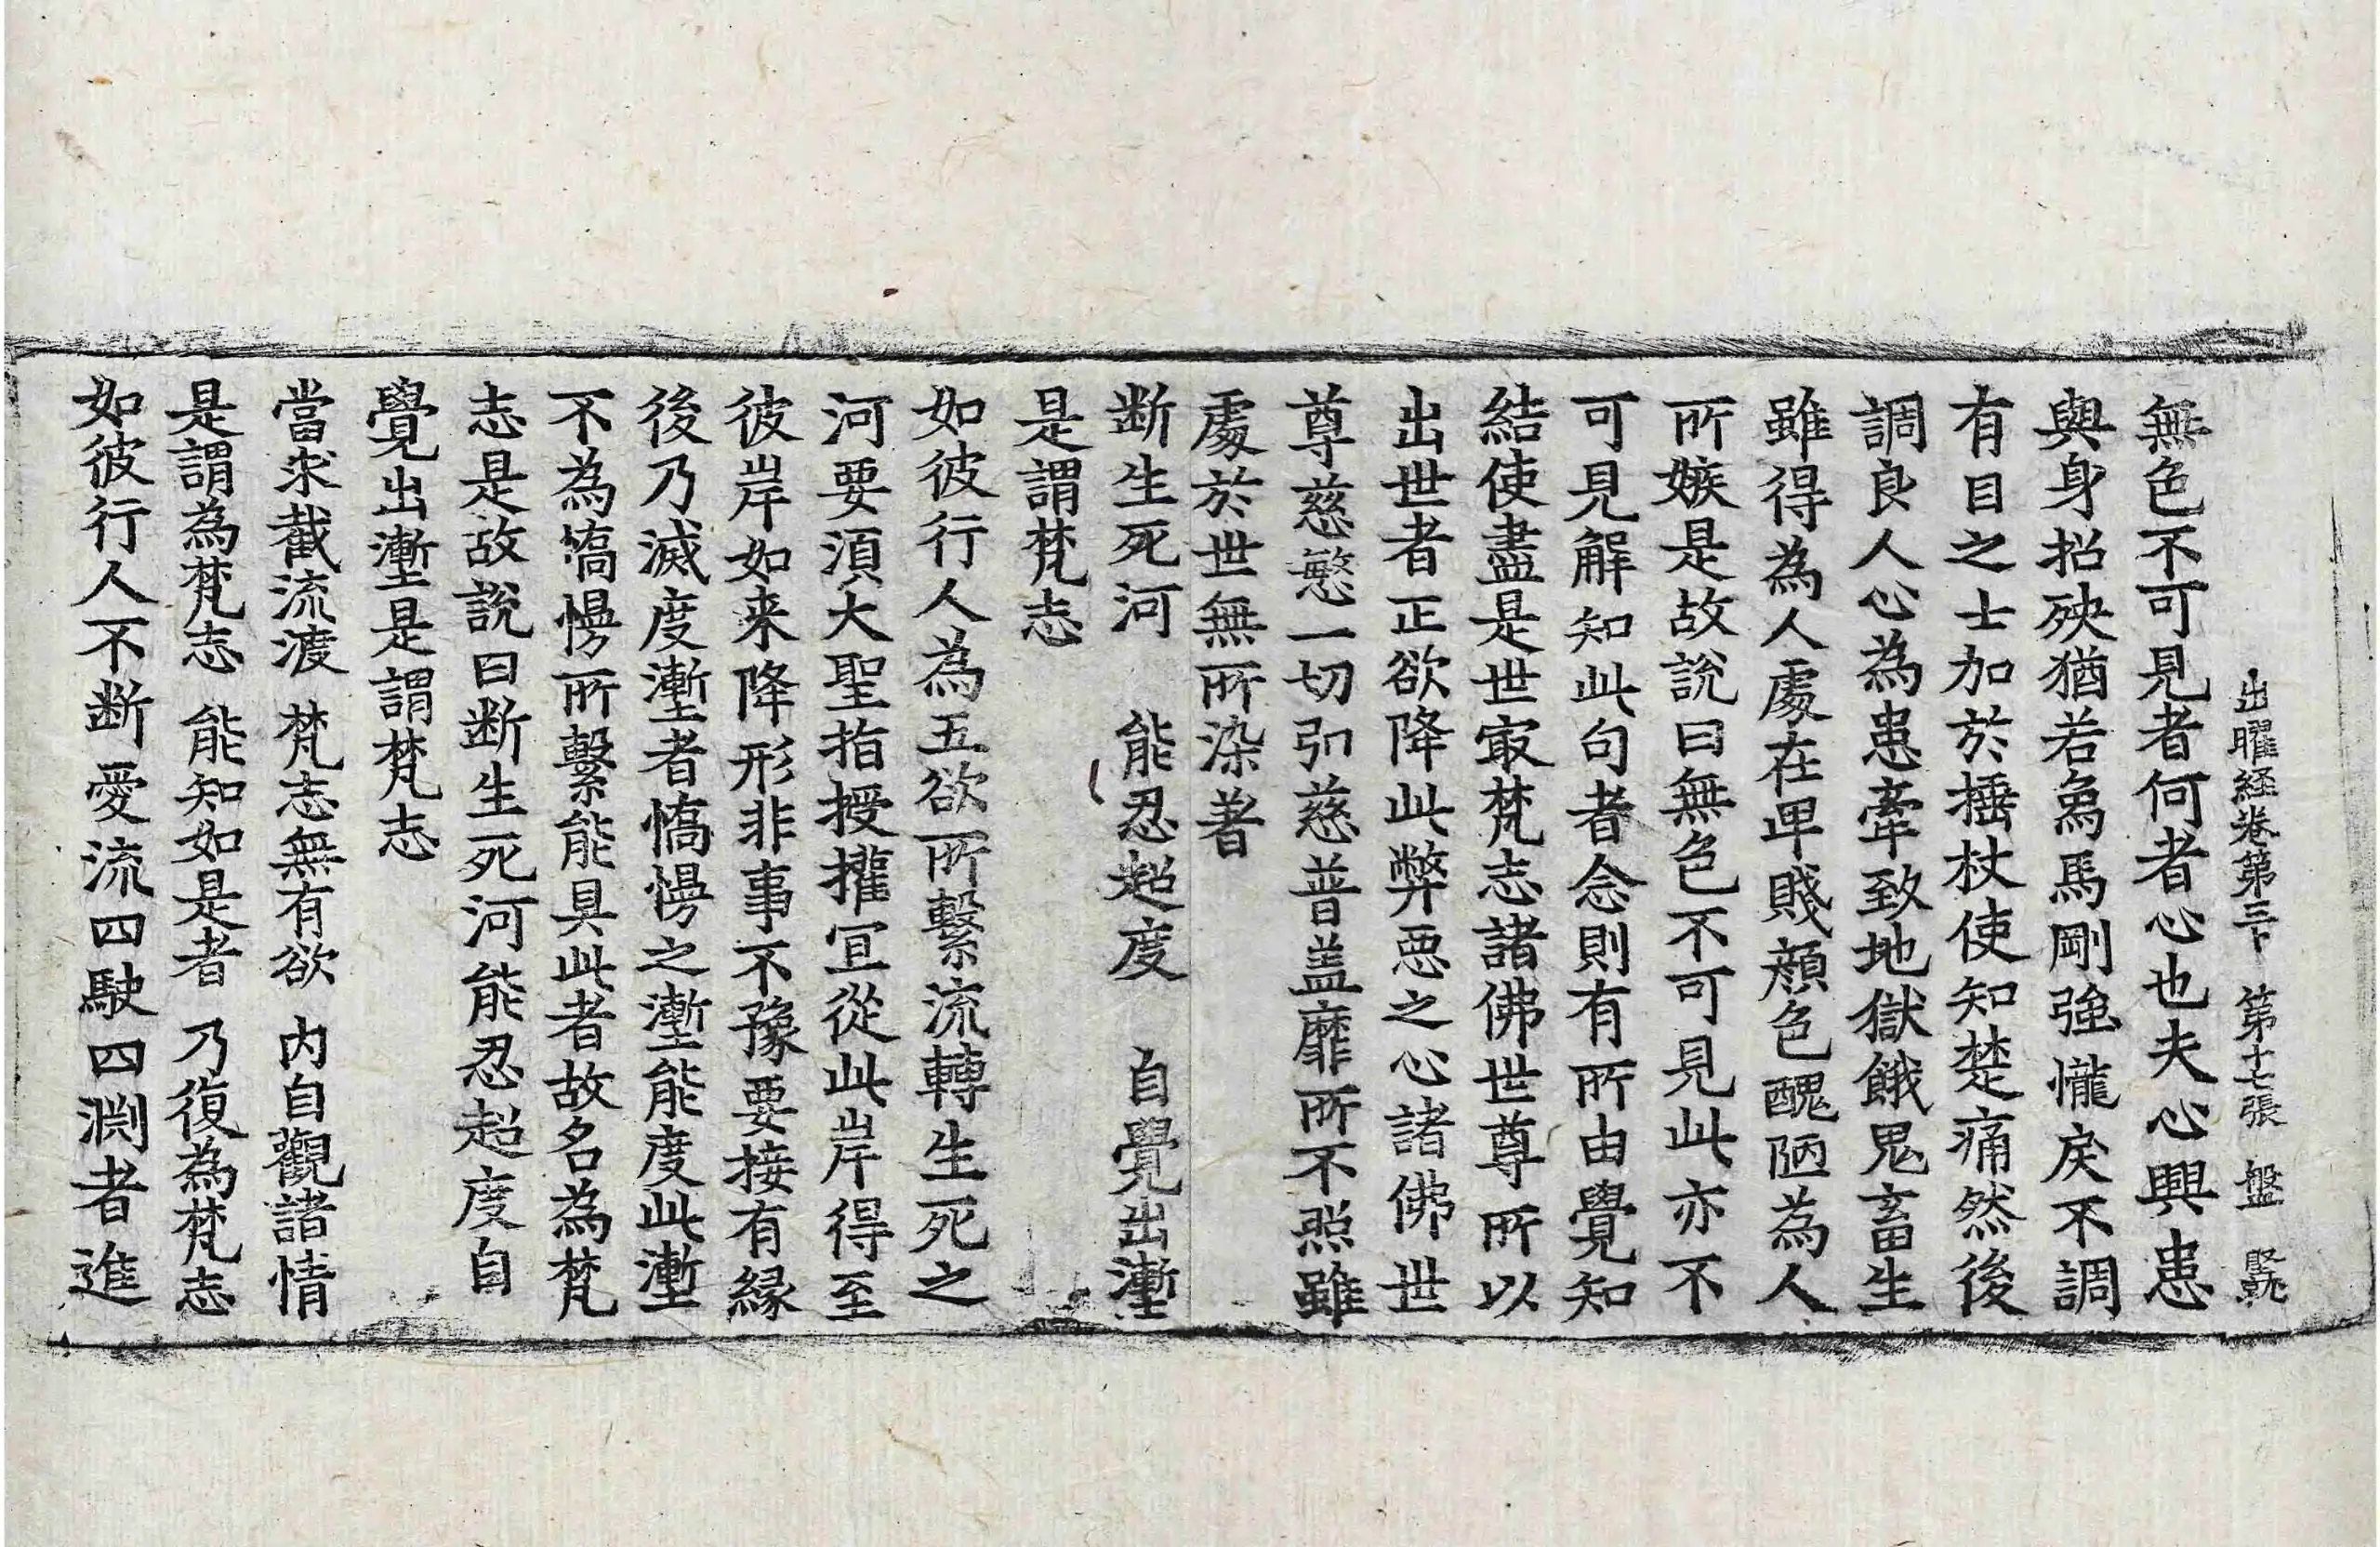 出曜経巻第三十 第十七張 盤
無色不可見者何者心也夫心興患
與身招殃猶若象馬剛強㦬戾不調
有目之士加於捶杖使知楚痛然後
調良人心為患牽致地獄餓鬼畜生
雖得為人處在卑賤顏色醜陋為人
所嫉是故說曰無色不可見此亦不
可見解知此句者念則有所由覺知
結使盡是世㝡梵志諸佛世尊所以
出世者正欲降此弊惡之心諸佛世
尊慈愍一切引慈普盖靡所不照雖
處於世無所染著
断生死河 能忍超度 自覺出壍
是謂梵志
如彼行人為五欲所繫流轉生死之
河要須大聖指授權宜從此岸得至
彼岸如来降形非事不豫要接有緣
後乃滅度壍者憍慢之壍能度此壍
不為憍慢所繫能具此者故名為梵
志是故說曰断生死河能忍超度自
覺出壍是謂梵志
當求截流渡 梵志無有欲 內自觀諸情
是謂為梵志 能知如是者 乃復為梵志
如彼行人不断愛流四駛四渕者進